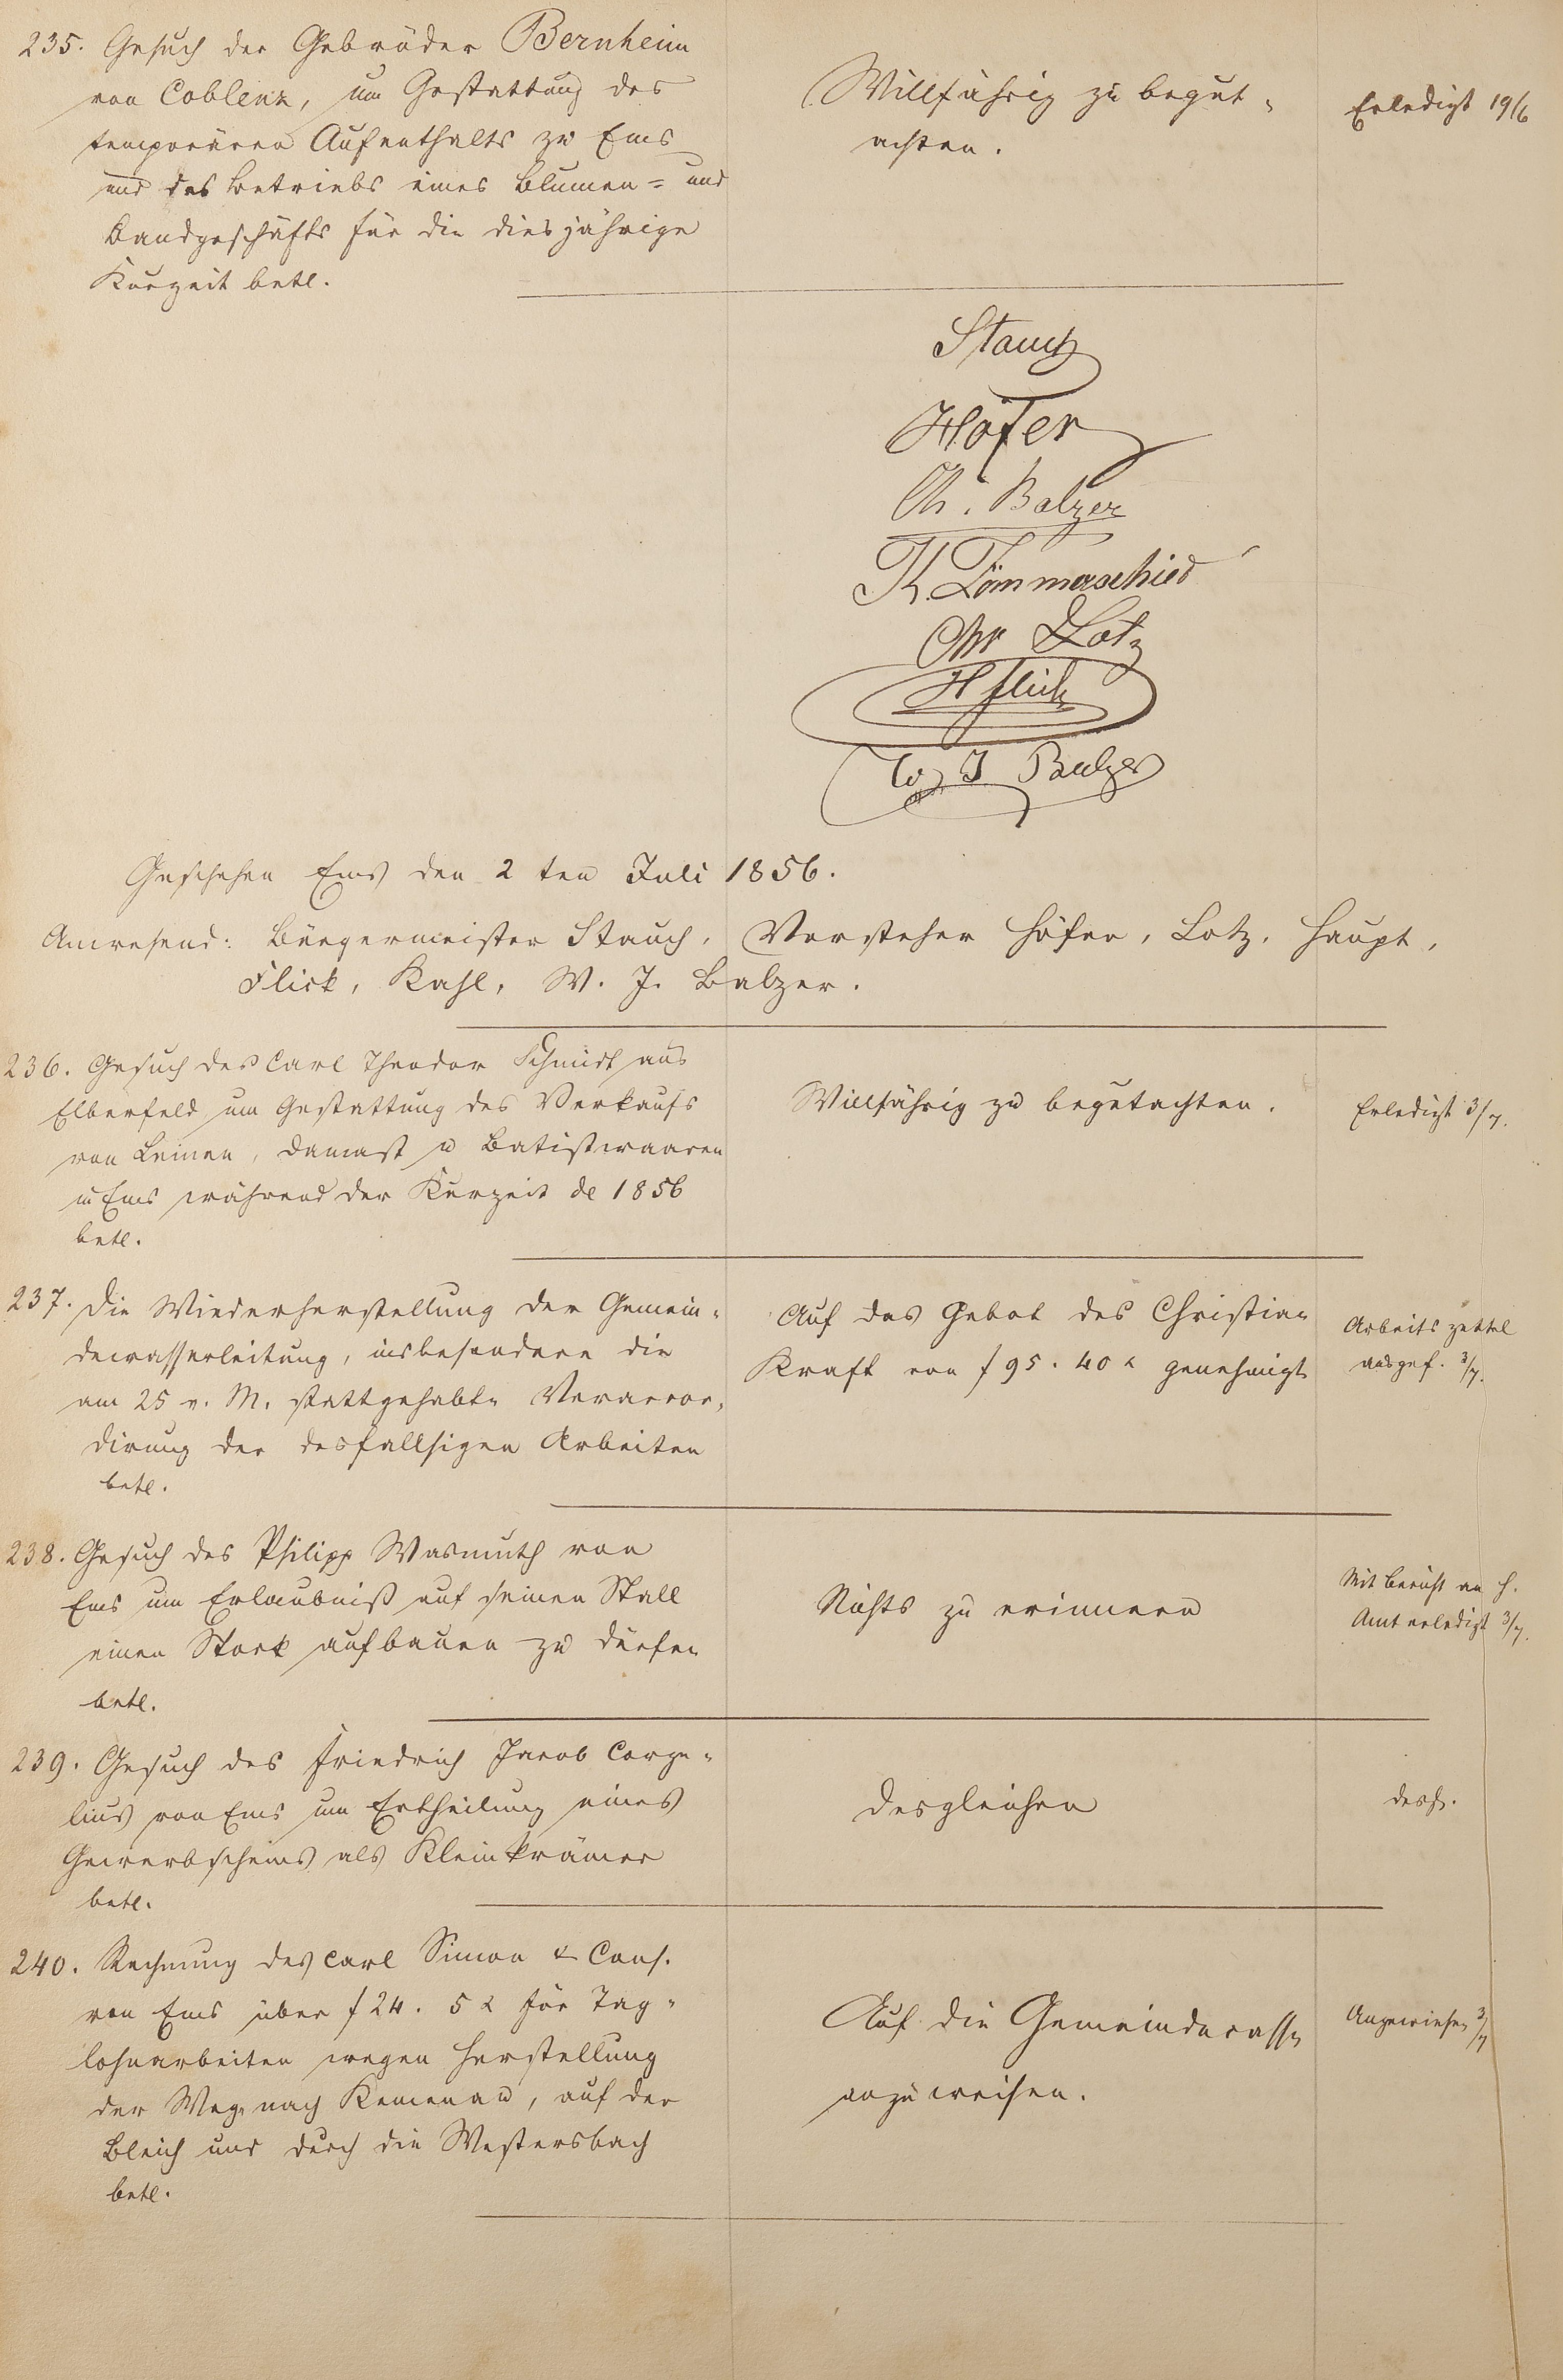 235. Gesuch der Gebrüder Bernheim
von Coblenz, um Gestattung des
temporären Aufenthalts zu Ems
und des Betriebs eines Blumen- und
Bandgeschäfts für die diesjährige
Kurzeit betl.
Willfährig zu begut-
achten.
Erledigt 19/6
Stauch
Höfer
Ch. Balzer
K. Lömmerschied
Chr Lotz
H Flick
W J Balzer
Geschehen Ems den 2ten Juli 1856.
Anwesend: Bürgermeister Stauch, Vorsteher Höfer, Lotz, Haupt,
Flick, Kahl, W. J. Balzer.
236. Gesuch des Carl Theodor Schmidt aus
Elberfeld um Gestattung des Verkaufs
von Leinen, Damast u Batistwaaren
in Ems während der Kurzeit de 1856
betl.
Willfährig zu begutachten.
Erledigt 3/7.
237. Die Wiederherstellung der Gemein-
dewasserleitung, insbesondere die
am 25 v. M. stattgehabte Veraccor-
dirung der desfallsigen Arbeiten
betl.
Auf das Gebot des Christian
Kraft von f 95. 40 x genehmigt
Arbeitszettel
ausgef. 3/7.
238. Gesuch des Philipp Wasmuth von
Ems um Erlaubniß auf seinen Stall
einen Stock aufbauen zu dürfen
betl.
Nichts zu erinnern
Mit Bericht an H.
Amt erledigt 3/7.
239. Gesuch des Friedrich Jacob Corze-
lius von Ems um Ertheilung eines
Gewerbscheins als Kleinkrämer
betl.
desgleichen
desgl.
240. Rechnung des Carl Simon & Cons.
von Ems über f 24. 5 x für Tag-
lohnarbeiten wegen Herstellung
der Wege nach Kemenau, auf der
Bleich und durch die Westersbach
betl.
Auf die Gemeindecasse
anzuweisen.
Angewiesen 3/7